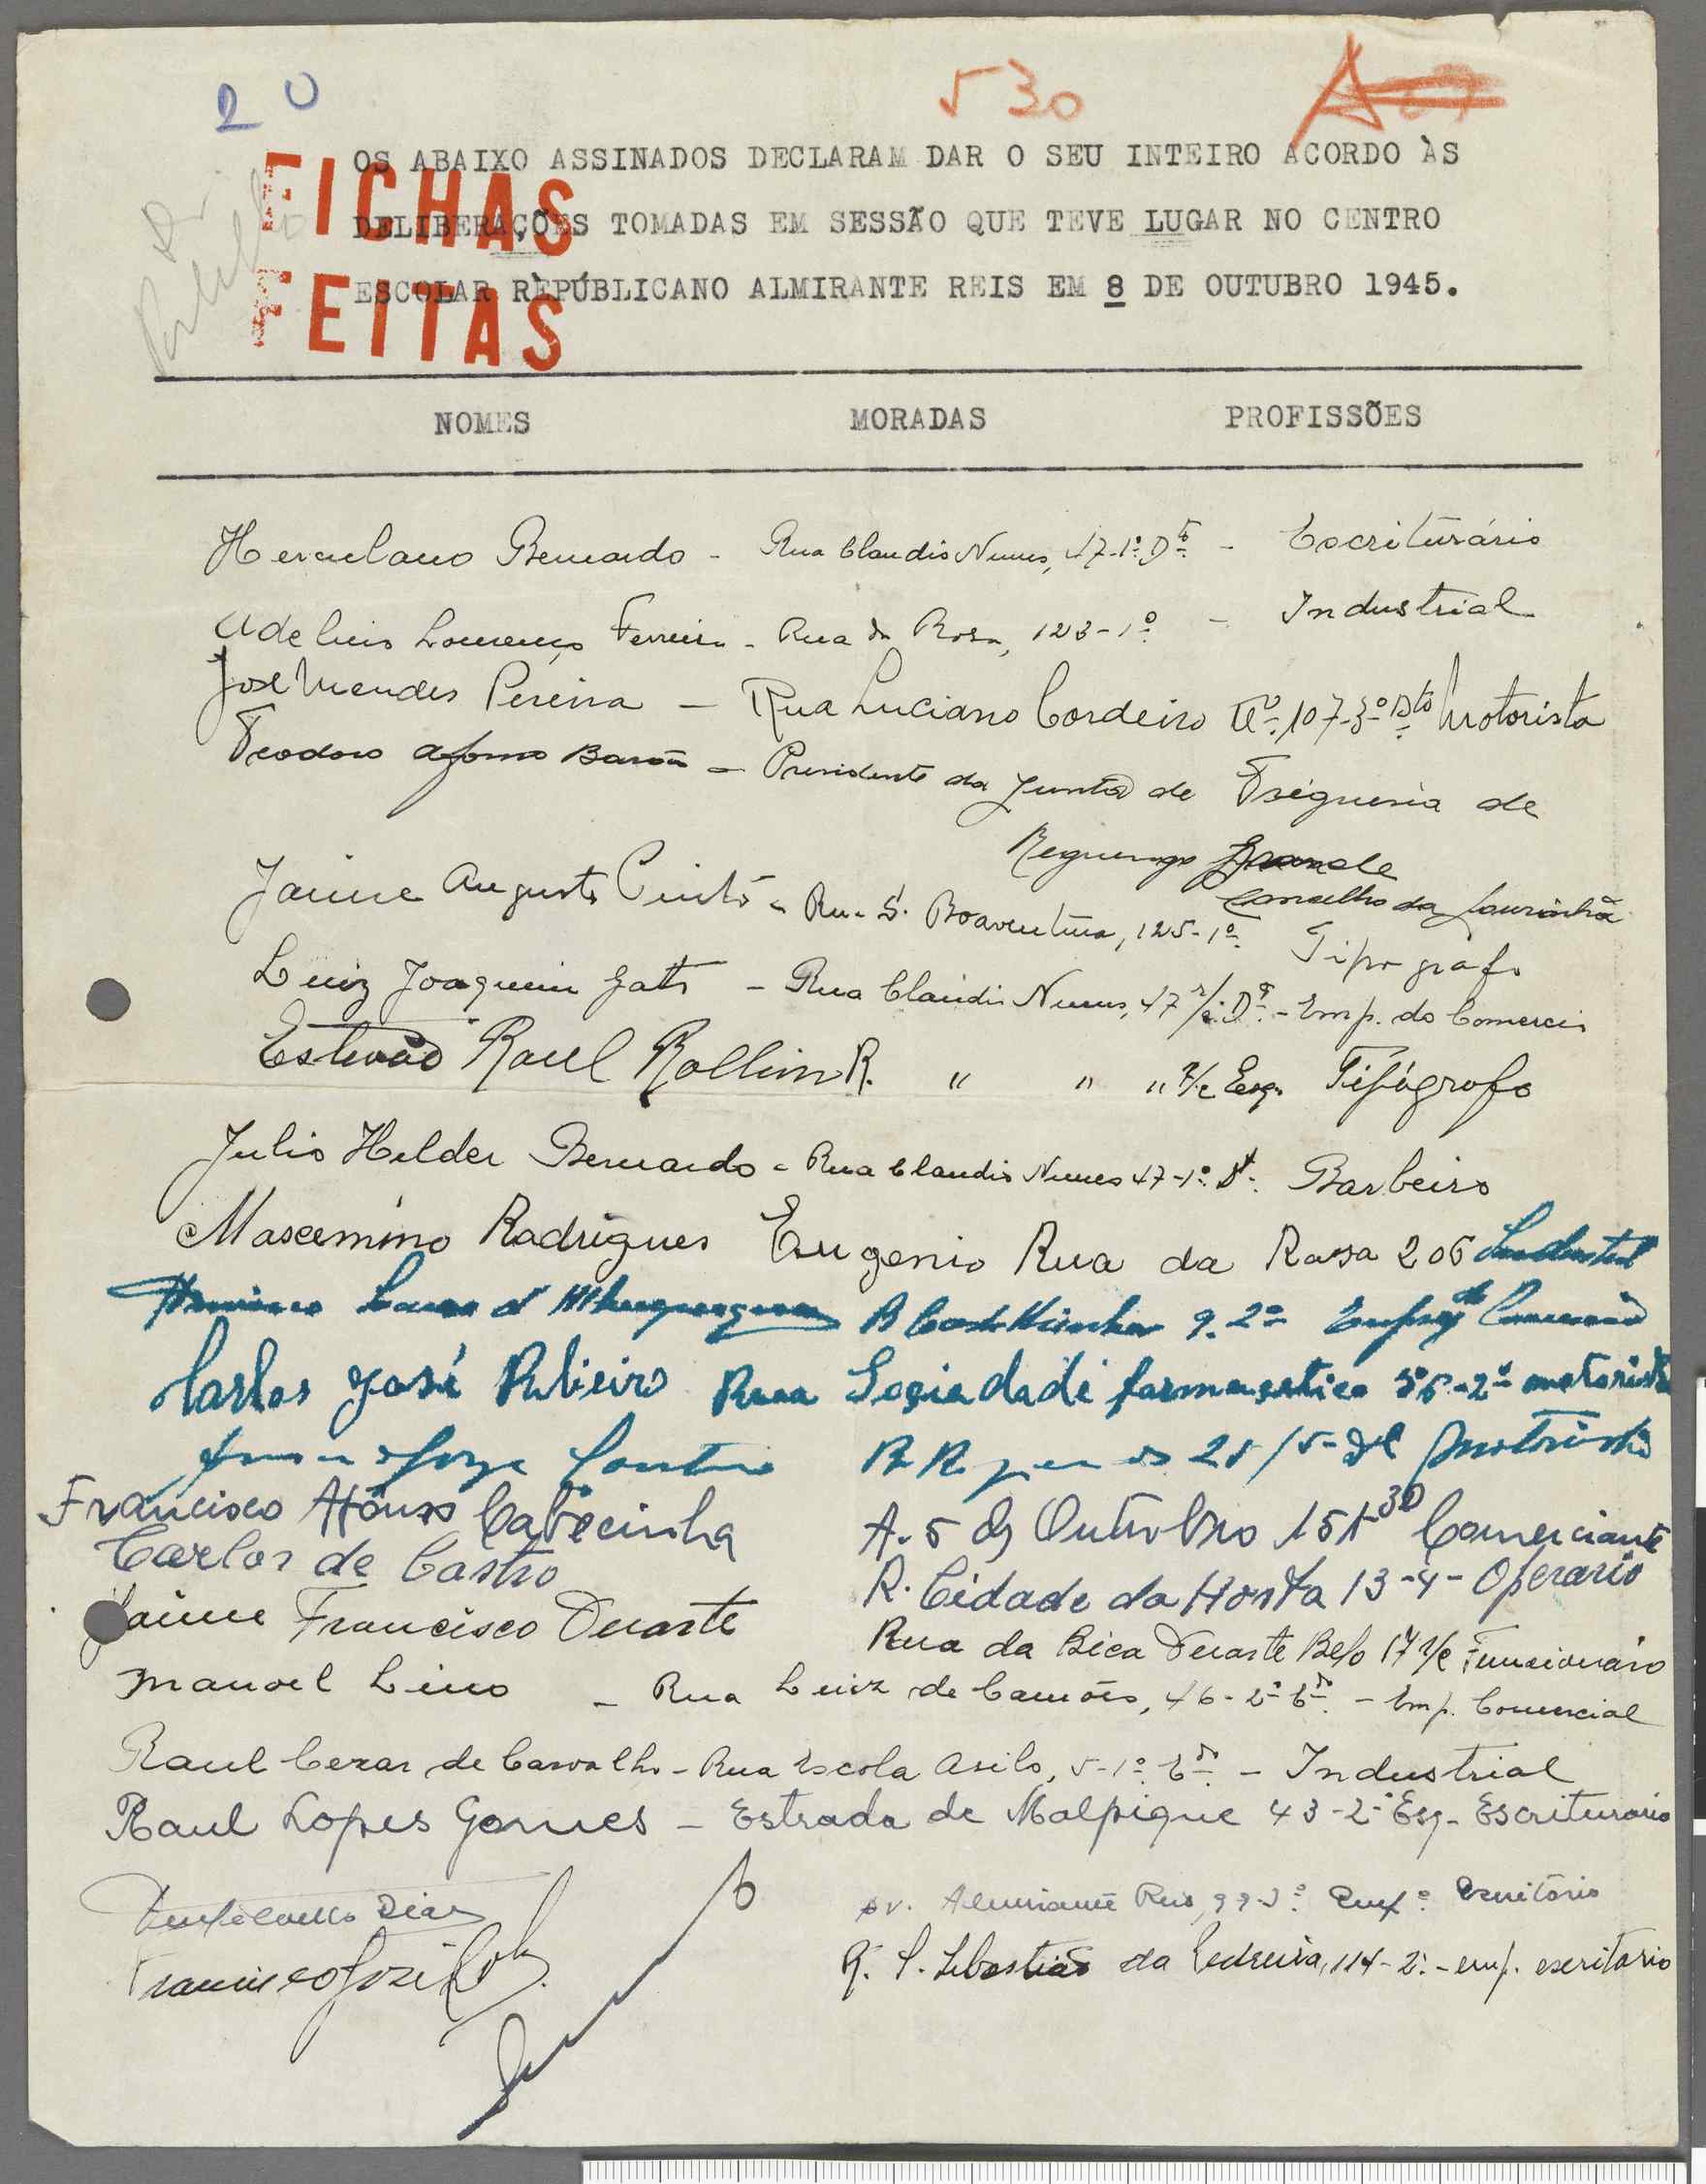 20
530
OS ABAIXO ASSINADOS DECLARAM DAR O SEU INTEIRO ACORDO ÀS
FICHAS
DELIBERAÇÕES TOMADAS EM SESSÃO QUE TEVE LUGAR NO CENTRO
ESCOLAR REPÚBLICANO ALMIRANTE REIS EM 8 DE OUTUBRO 1945.
FEITAS
NOMES MORADAS PROFISSÕES
Herculano Bernardo - Rua Claudio Nunes, 47-1º Dtº - Escriturário
Adelino Lourenço Ferreira - Rua da Rosa, 123-1º - Industrial
José Mendes Pereira - Rua Luciano Cordeiro Nº 107-3º Dto Motorista
Teodoro Afonso - Presidente da Junta de Freguesia de
Reguengo Grande
Concelho da Lourinhã
Jaime Augusto Pinto - Rua S. Boaventura, 125-1º Tipografo
Luiz Joaquim Gato - Rua Claudio Nunes, 47 r/c Dtº - Emp. do Comercio
Estevão Raul Rollim R. " " " r/c Esq. Tipógrafo
Julio Helder Bernardo - Rua Claudio Nunes 47-1º Dt. Barbeiro
Mascemino Rodrigues Eugenio Rua da Rosa 206 Industrial
d'Albuquerque 9.2º
Carlos José Ribeiro Rua Sociedade farmasetica 56-2º motorista
Jorge Motorista
Francisco Afonso Cabecinha A. 5 de Outubro 151 3º Comerciante
Carlos de Castro R. Cidade da Horta 13-4- Operario
Jaime Francisco Duarte Rua da Bica Duarte Belo 17 r/c Funcionário
Manoel Lino - Rua Luiz de Camões, 46-2º Edº - Emp. Comercial
Raul Cezar de Carvalho - Rua Escola Asilo, 5-1º Edº - Industrial
Raul Lopes Gomes - Estrada de Malpique 43-2º Esq- Escriturario
Dias Av. Almirante Reis, 99-3º Empº Escritório
Francisco José R. S. Sebastião da Pedreira, 114-2º - emp. escritorio